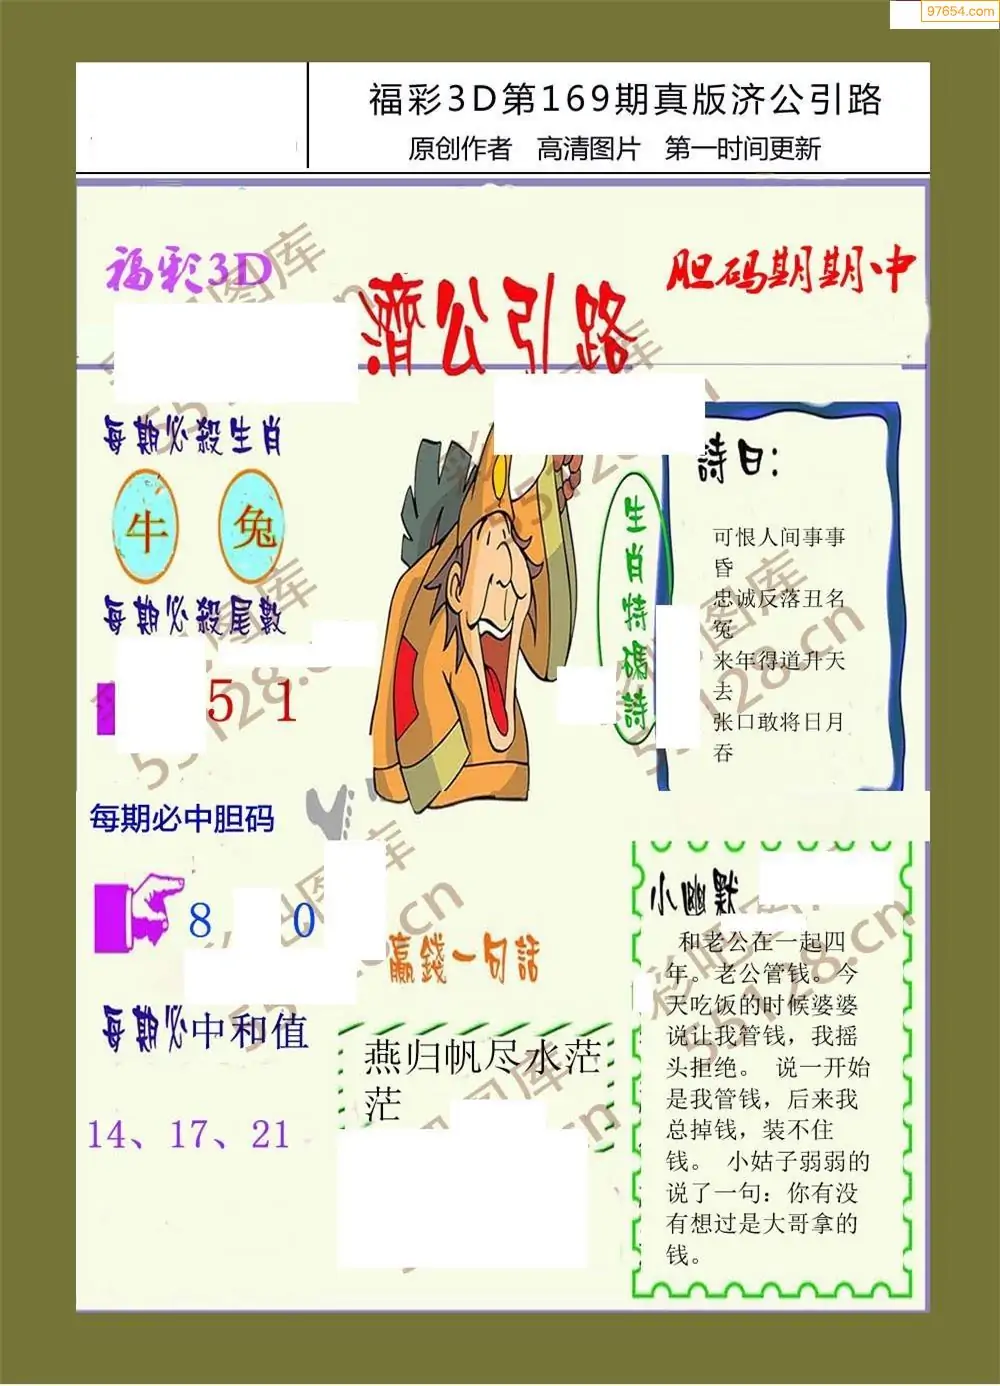 97654.com
福彩3D第169期真版济公引路
原创作者 高清图片 第一时间更新
福彩3D
胆码期期中
濟公引路
每期必殺生肖
牛 兔
每期必殺尾數
5 1
每期必中胆码
8 0
每期必中和值
14、17、21
生肖特碼詩
詩曰:
可恨人间事事
昏
忠诚反落丑名
冤
来年得道升天
去
张口敢将日月
吞
赢錢一句話
燕归帆尽水茫
茫
小幽默
和老公在一起四
年。老公管钱。今
天吃饭的时候婆婆
说让我管钱，我摇
头拒绝。 说一开始
是我管钱，后来我
总掉钱，装不住
钱。 小姑子弱弱的
说了一句：你有没
有想过是大哥拿的
钱。
55128.cn